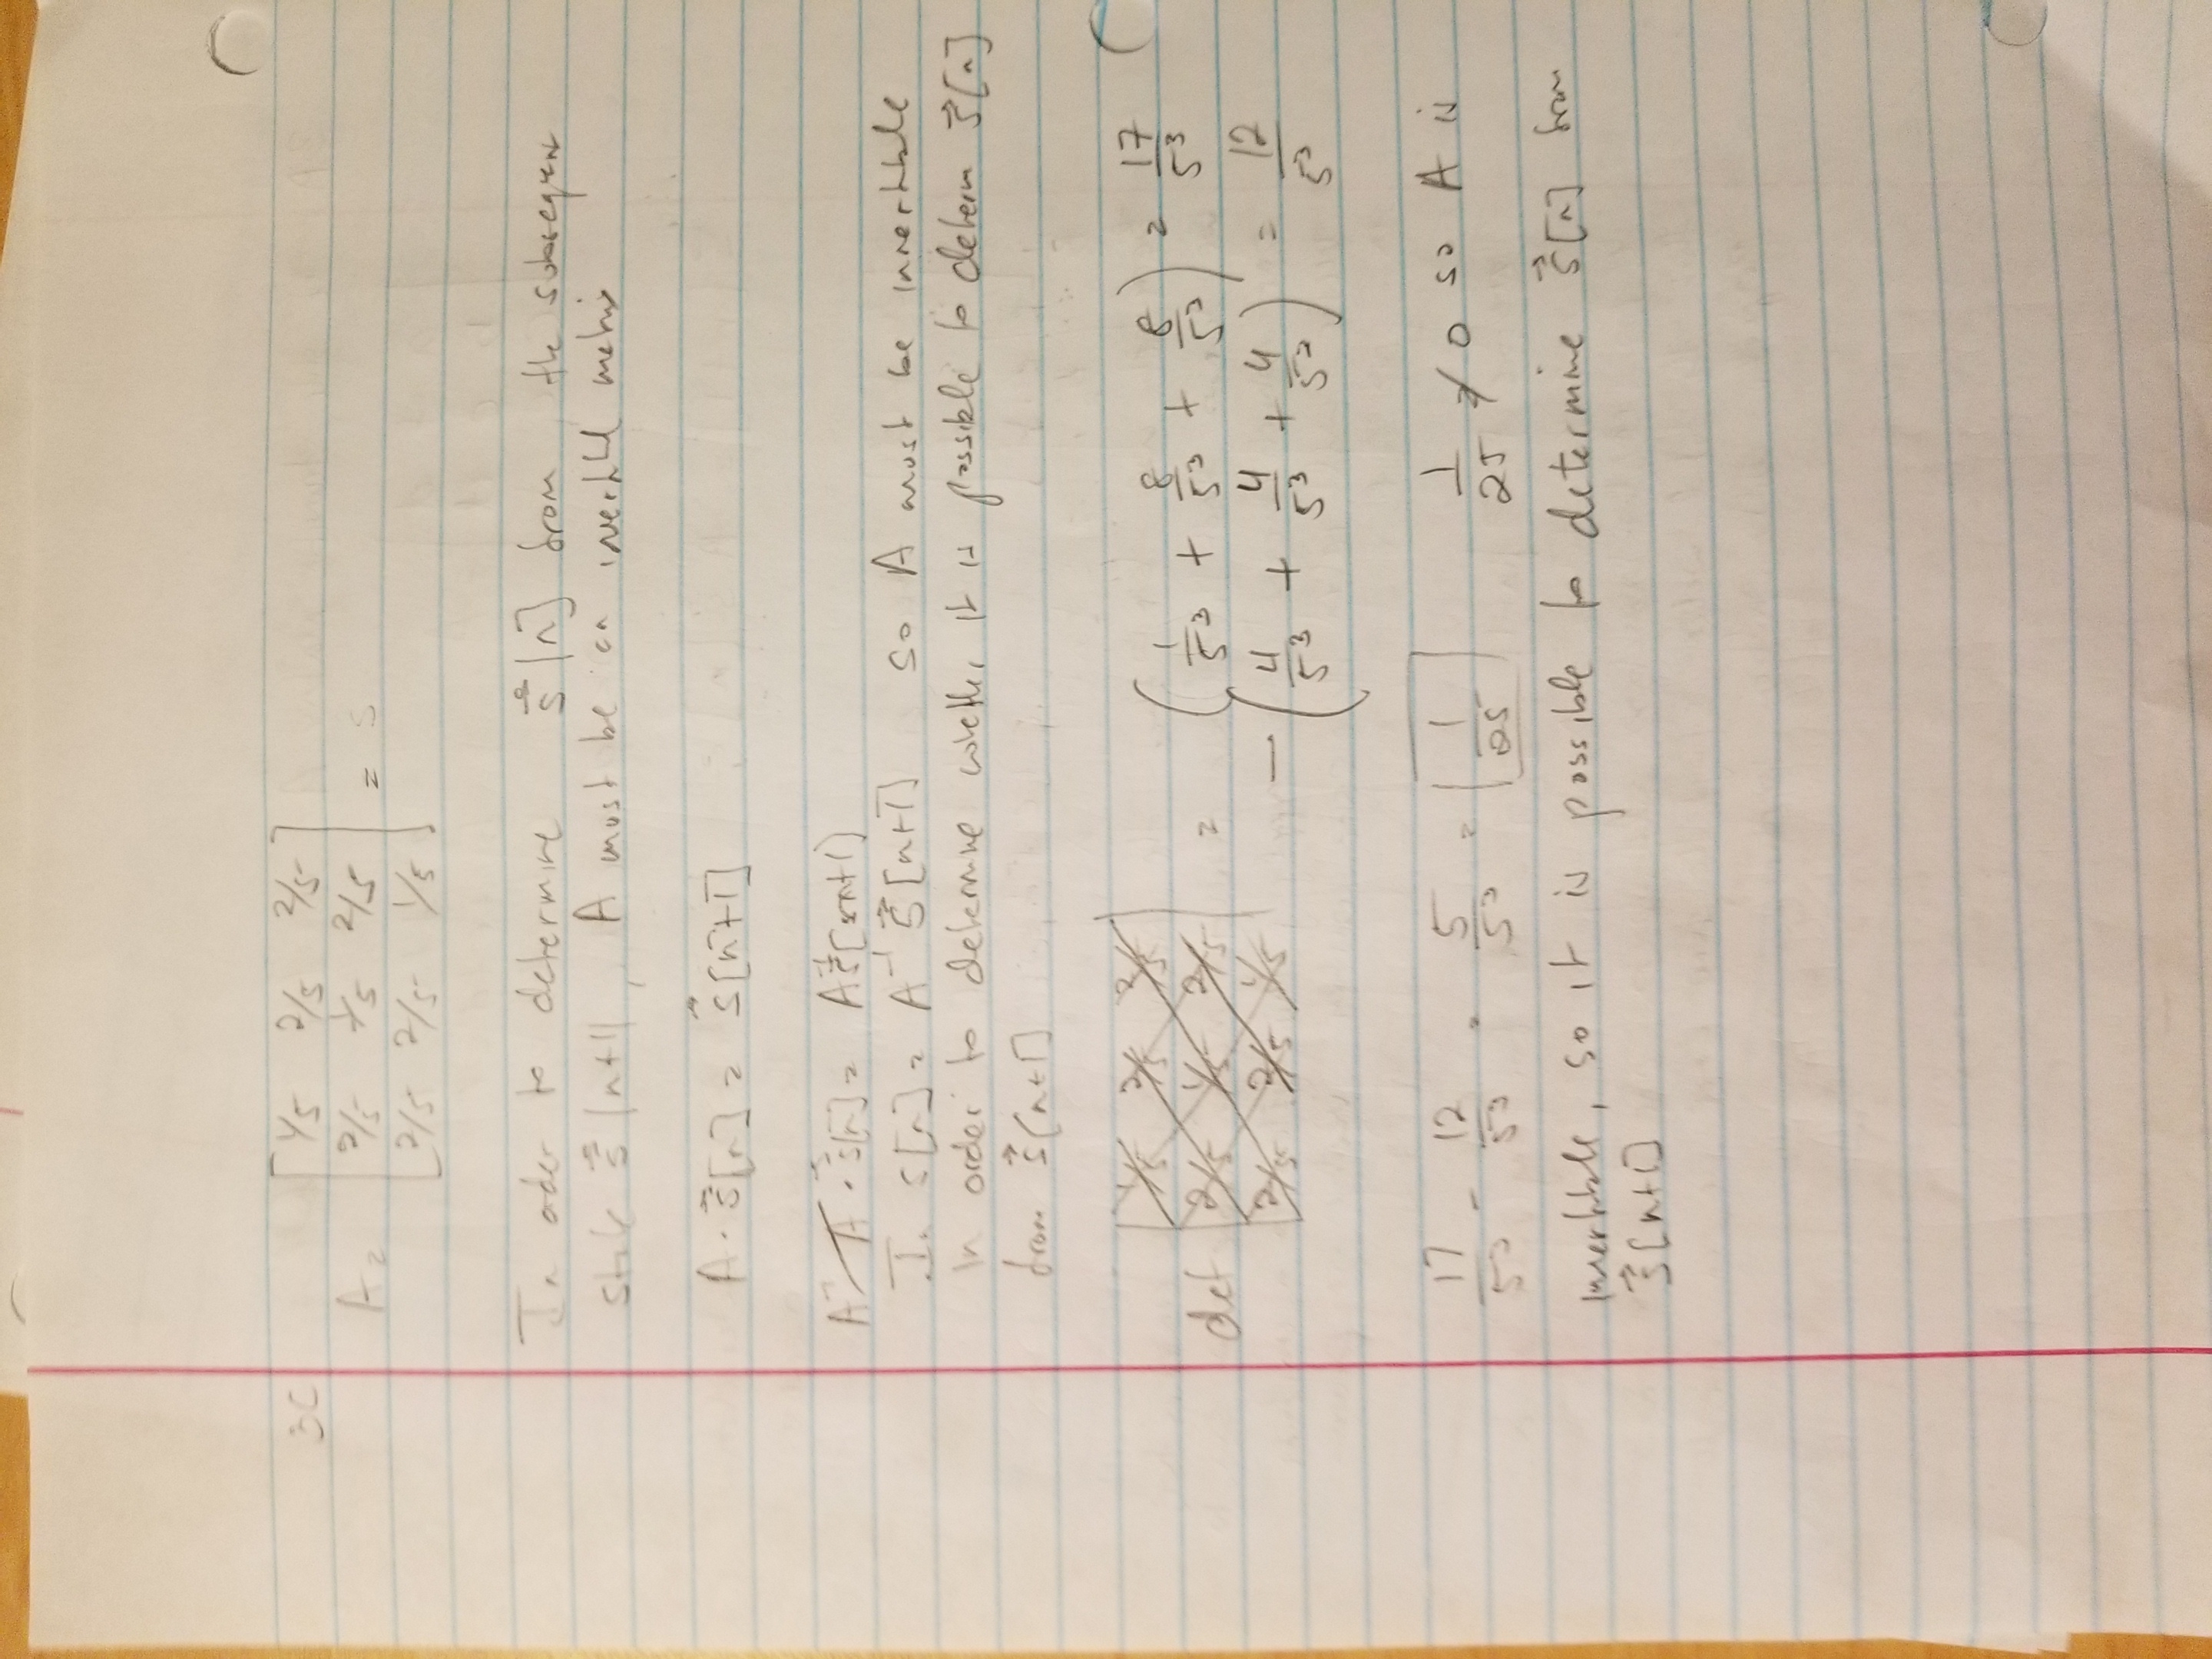 3C
A = [ 1/5 2/5 2/5
2/5 1/5 2/5 = s
2/5 2/5 1/5 ]
In oder to determine s⃗[n] from the subsequent
state s⃗[n+1], A must be an invertible matrix
A · s⃗[n] = s⃗[n+1]
A⁻¹ A · s⃗[n] = A⁻¹ s⃗[n+1]
In s[n] = A⁻¹ s⃗[n+1] so A must be invertible
in order to determine whether it is possible to determ s⃗[n]
from s⃗[n+1]
det | 1/5 2/5 2/5
2/5 1/5 2/5
2/5 2/5 1/5 | = (1/5³ + 8/5³ + 8/5³) = 17/5³
− (4/5³ + 4/5³ + 4/5³) = 12/5³
17/5³ - 12/5³ = 5/5³ = 1/25 1/25 ≠ 0 so A is
invertible, so it is possible to determine s⃗[n] from
s⃗[n+1]